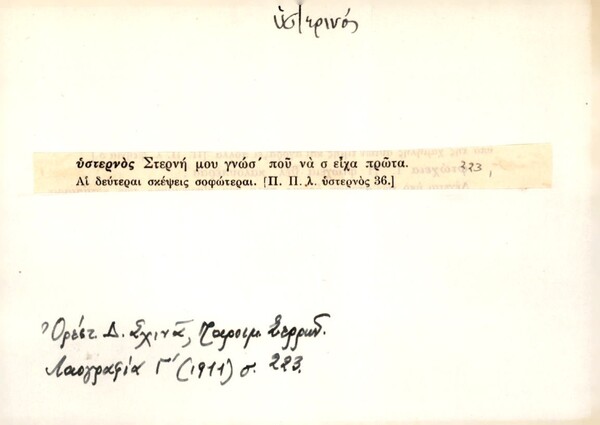 ὑστερινός
ὑστερνὸς Στερνή μου γνώσ᾽ ποῦ νὰ σ εἶχα πρῶτα. 223,
Αἱ δεύτεραι σκέψεις σοφώτεραι. [Π. Π. λ. ὑστερνὸς 36.]
Ὀρέστ. Δ. Σχινᾶ, Παροιμ. Σερρῶν.
Λαογραφία Γ´ (1911) σ. 223.